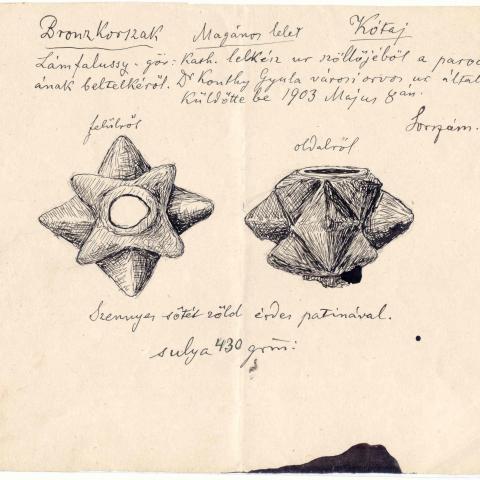 Bronzkorszak Magános lelet Kótaj
Lámfalussy - gör: Kath. lelkész ur szöllőjéből a paroc
ának beltelkéről. Dr Konthy Gyula városi orvos ur által
Küldötte be 1903 Május 8án.
Sorszám.
felülről
oldalról
Szennyes sötét zöld érdes patinával.
sulya 430 grm: